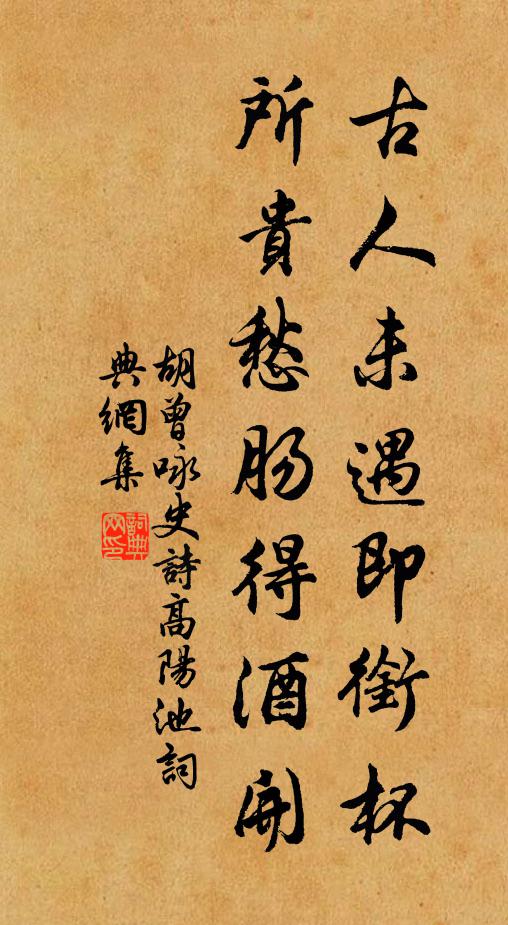 古人未遇即銜杯
所貴愁腸得酒開
胡曾咏史詩高陽池詞
典網集
詞典網印